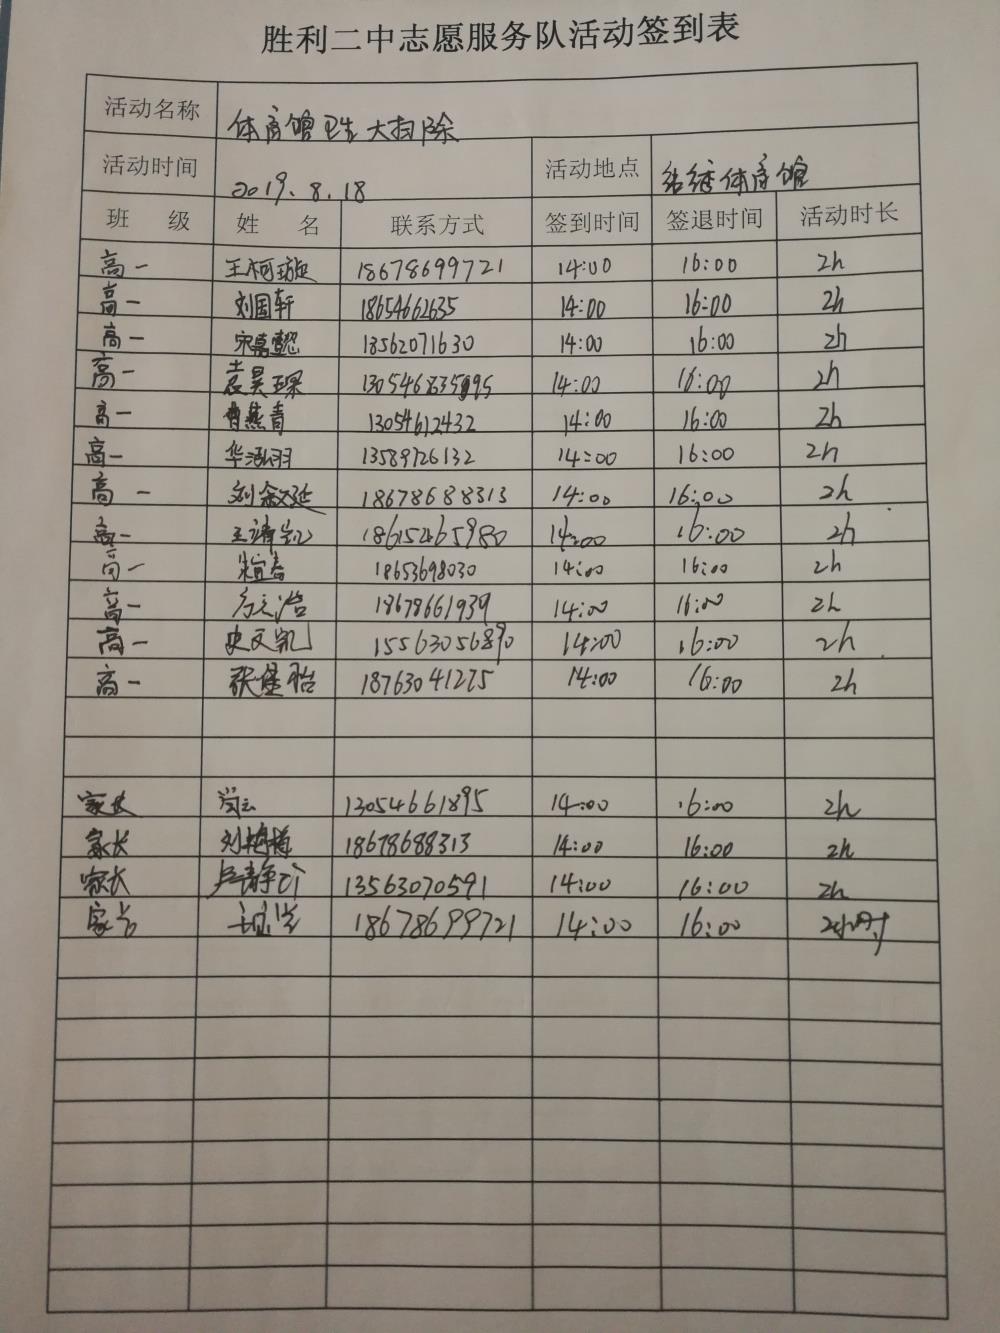 胜利二中志愿服务队活动签到表
活动名称 体育馆卫生大扫除
活动时间 2019.8.18 活动地点 锦绣体育馆
班 级 姓 名 联系方式 签到时间 签退时间 活动时长
高一 王柯璇 18678699721 14:00 16:00 2h
高一 刘国轩 18654662635 14:00 16:00 2h
高一 宋嘉懿 13562071630 14:00 16:00 2h
高一 袁昊 14:00 16:00 2h
高一 曹燕青 13054612432 14:00 16:00 2h
高一 华泓羽 13589726132 14:00 16:00 2h
高一 刘叙延 18678688313 14:00 16:00 2h
高一 18615465980 14:00 16:00 2h
高一 18653698030 14:00 16:00 2h
高一 18678661939 14:00 16:00 2h
高一 史文凯 15563056890 14:00 16:00 2h
高一 18763041275 14:00 16:00 2h
家长 13054661895 14:00 16:00 2h
家长 18678688313 14:00 16:00 2h
家长 13563070591 14:00 16:00 2h
家长 18678699721 14:00 16:00 2小时